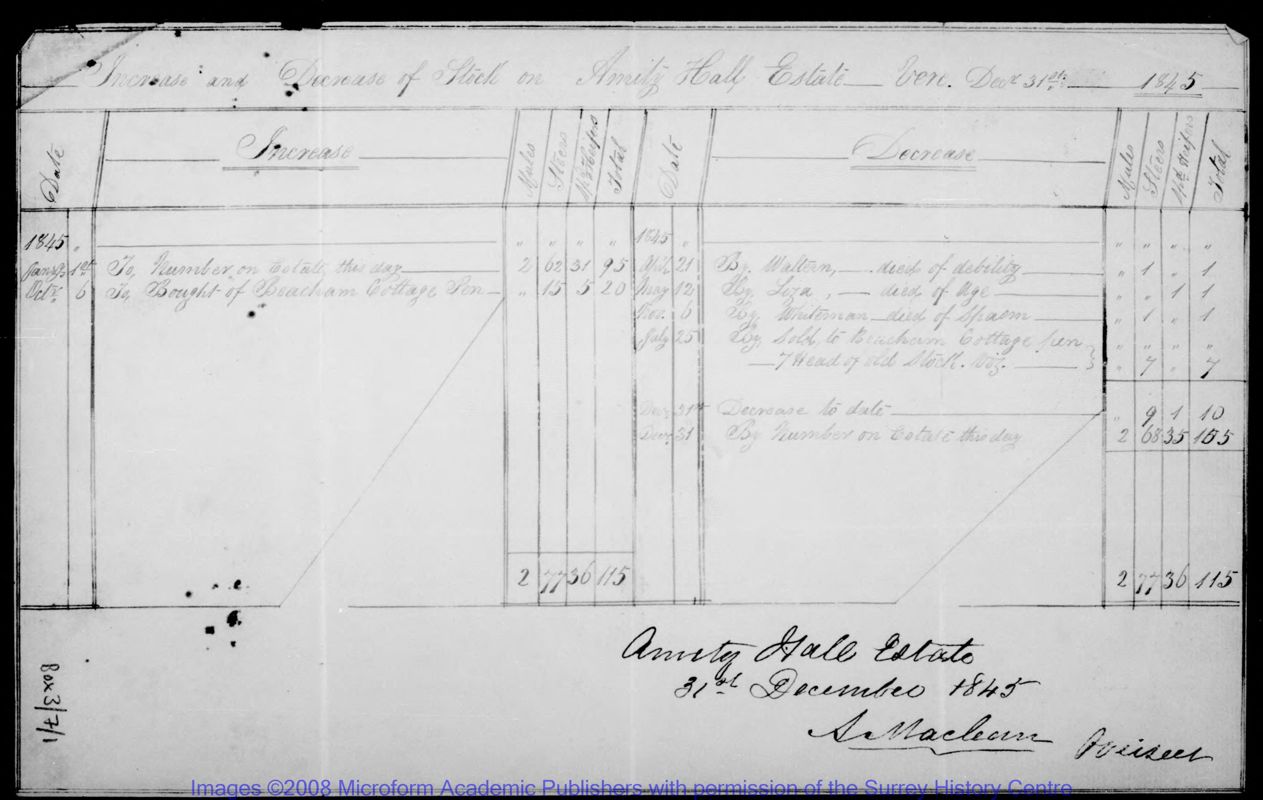 Increase and Decrease of Stock on Amity Hall Estate — Vere. Decr 31st — 1845
Date Increase Mules Steers Wg. Heifers Total Date Decrease Mules Steers Wg. Heifers Total
1845 " " " " " 1845 " " " " "
Jany 1st To, Number on Estate, this day 2 62 31 95 April 21 By Waltern, — died of debility " 1 " 1
Octr 6 To, Bought of Beacham Cottage Pen " 15 5 20 May 12 By Liza, — died of Age " " 1 1
Nov. 6 By Whiteman — died of Spasm " 1 " 1
July 25 By Sold to Beacham Cottage pen " " " "
— 7 Head of old Stock. Viz. — " 7 " 7
Decr 31st Decrease to date " 9 1 10
Decr 31 By Number on Estate this day 2 68 35 105
2 77 36 115 2 77 36 115
Amity Hall Estate
31st December 1845
A Maclean Overseer
Box 3/7/1
Images ©2008 Microform Academic Publishers with permission of the Surrey History Centre